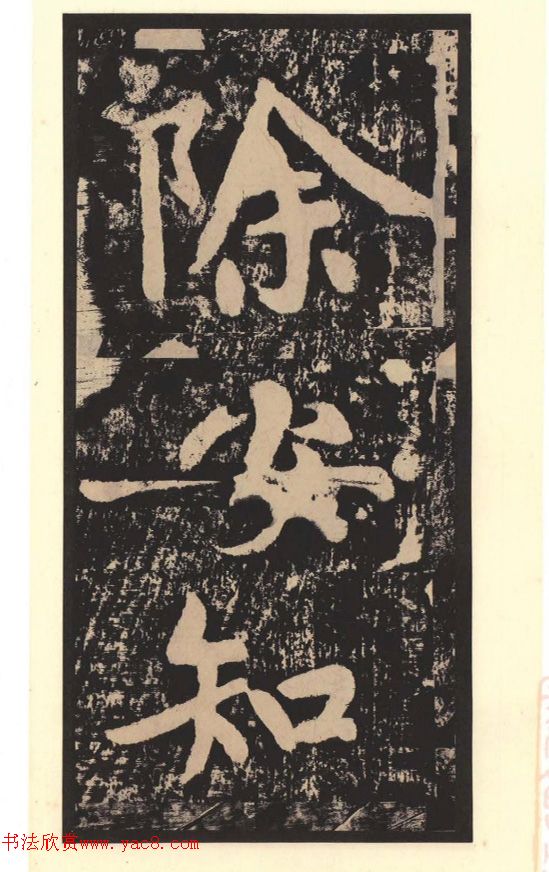 除
安
知
书法欣赏www.yac8.com